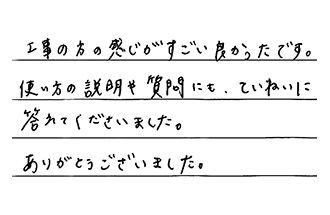 工事の方の感じがすごい良かったです。
使い方の説明や質問にも、ていねいに
答れてくださいました。
ありがとうございました。